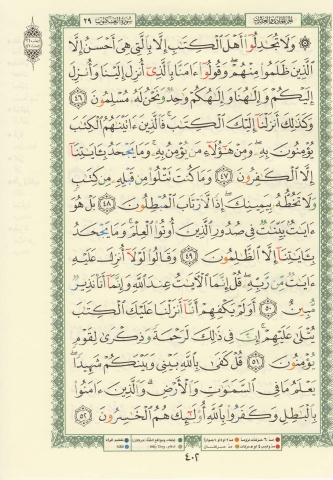 سورة العنكبوت ٢٩
۞ وَلَا تُجَٰدِلُوٓا۟ أَهْلَ ٱلْكِتَٰبِ إِلَّا بِٱلَّتِى هِىَ أَحْسَنُ إِلَّا
ٱلَّذِينَ ظَلَمُوا۟ مِنْهُمْ ۖ وَقُولُوٓا۟ ءَامَنَّا بِٱلَّذِىٓ أُنزِلَ إِلَيْنَا وَأُنزِلَ
إِلَيْكُمْ وَإِلَٰهُنَا وَإِلَٰهُكُمْ وَٰحِدٌ وَنَحْنُ لَهُۥ مُسْلِمُونَ ٤٦
وَكَذَٰلِكَ أَنزَلْنَآ إِلَيْكَ ٱلْكِتَٰبَ ۚ فَٱلَّذِينَ ءَاتَيْنَٰهُمُ ٱلْكِتَٰبَ
يُؤْمِنُونَ بِهِۦ ۖ وَمِنْ هَٰٓؤُلَآءِ مَن يُؤْمِنُ بِهِۦ ۚ وَمَا يَجْحَدُ بِـَٔايَٰتِنَآ
إِلَّا ٱلْكَٰفِرُونَ ٤٧ وَمَا كُنتَ تَتْلُوا۟ مِن قَبْلِهِۦ مِن كِتَٰبٍ
وَلَا تَخُطُّهُۥ بِيَمِينِكَ ۖ إِذًا لَّٱرْتَابَ ٱلْمُبْطِلُونَ ٤٨ بَلْ هُوَ
ءَايَٰتٌۢ بَيِّنَٰتٌ فِى صُدُورِ ٱلَّذِينَ أُوتُوا۟ ٱلْعِلْمَ ۚ وَمَا يَجْحَدُ
بِـَٔايَٰتِنَآ إِلَّا ٱلظَّٰلِمُونَ ٤٩ وَقَالُوا۟ لَوْلَآ أُنزِلَ عَلَيْهِ
ءَايَٰتٌ مِّن رَّبِّهِۦ ۖ قُلْ إِنَّمَا ٱلْـَٔايَٰتُ عِندَ ٱللَّهِ وَإِنَّمَآ أَنَا۠ نَذِيرٌ
مُّبِينٌ ٥٠ أَوَلَمْ يَكْفِهِمْ أَنَّآ أَنزَلْنَا عَلَيْكَ ٱلْكِتَٰبَ
يُتْلَىٰ عَلَيْهِمْ ۚ إِنَّ فِى ذَٰلِكَ لَرَحْمَةً وَذِكْرَىٰ لِقَوْمٍ
يُؤْمِنُونَ ٥١ قُلْ كَفَىٰ بِٱللَّهِ بَيْنِى وَبَيْنَكُمْ شَهِيدًا ۖ
يَعْلَمُ مَا فِى ٱلسَّمَٰوَٰتِ وَٱلْأَرْضِ ۗ وَٱلَّذِينَ ءَامَنُوا۟
بِٱلْبَٰطِلِ وَكَفَرُوا۟ بِٱللَّهِ أُو۟لَٰٓئِكَ هُمُ ٱلْخَٰسِرُونَ ٥٢
٤٠٢